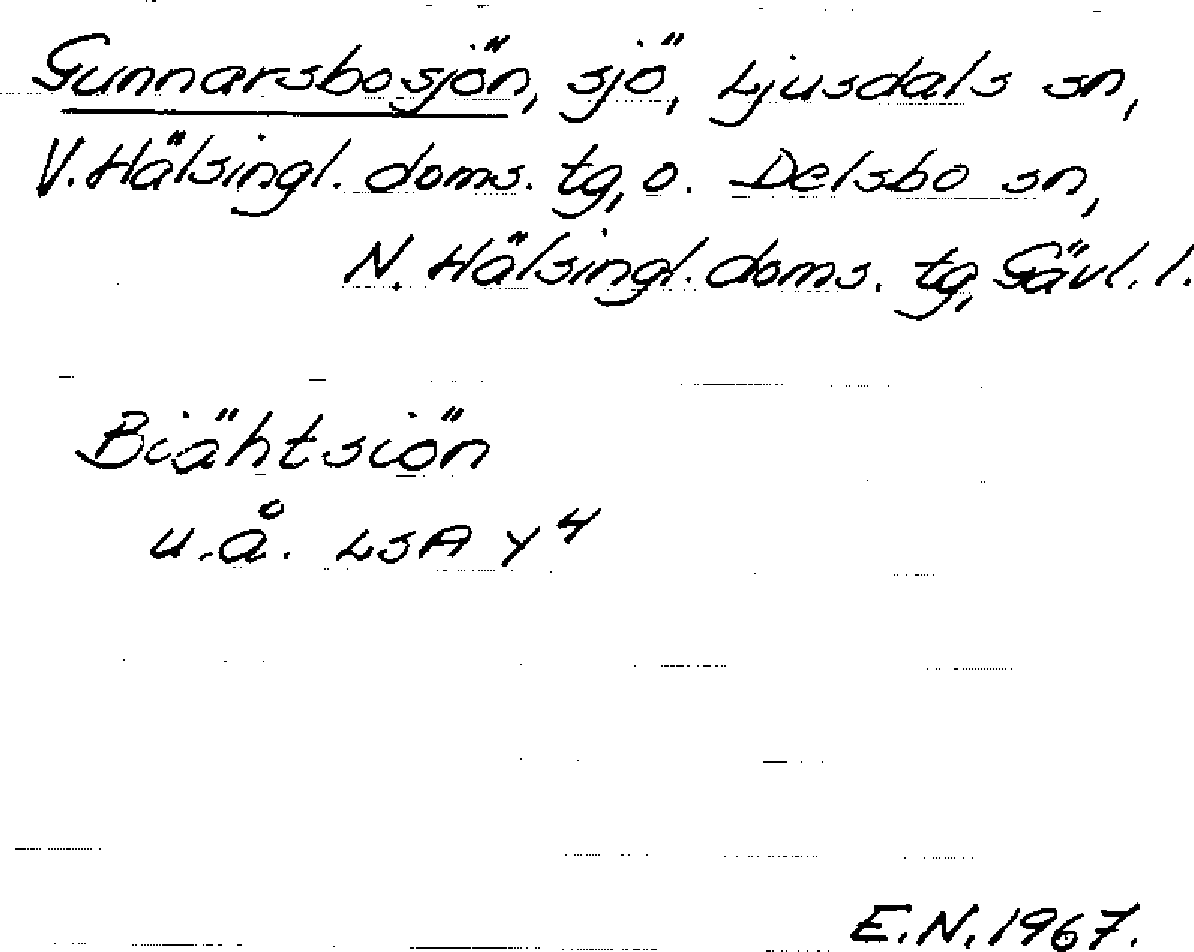 Gunnarsbosjön, sjö, Ljusdals sn,
V. Hälsingl. doms. tg, o. Delsbo sn,
N. Hälsingl. doms. tg, Gävl. l.
Biähtsiön
u.å. LSA Y 4
E.N. 1967.